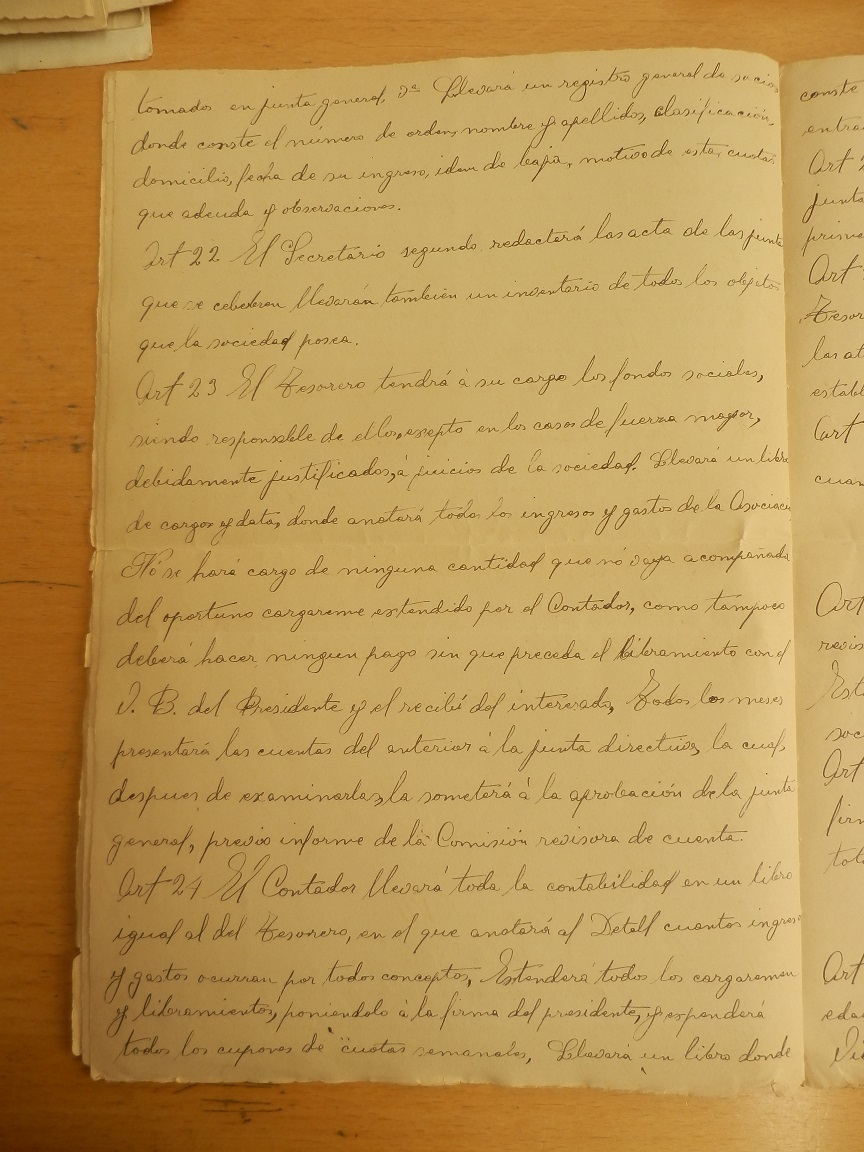 tomados en junta general, 2ª Llevará un registro general de socios
donde conste el número de orden, nombre y apellidos, clasificación,
domicilio, fecha de su ingreso, idem de baja, motivo de esta, cuotas
que adeuda y observaciones.
Art 22 El Secretario segundo redactará las acta de las junta
que se cebebren llevarán tambien un inventario de todos los objetos
que la sociedad posea.
Art 23 El Tesorero tendrá à su cargo los fondos sociales,
siendo responsble de ellos, exepto en los casos de fuerza mayor,
debidamente justificados, á juicios de la sociedad. Llevará un libro
de cargos y data, donde anotará todos los ingresos y gastos de la Asociació
Nó se hará cargo de ninguna cantidad que nó vaya acompañada
del oportuno cargareme extendido por el Contador, como tampoco
deberá hacer ningun pago sin que preceda el libramiento con el
V. B. del Presidente y el recibí del interezado, Todos los meses
presentará las cuentas del anterior á la junta directiva, la cual,
despues de examinarlas, la someterá à la aprobación de la junta
general, previo informe de la Comisión revisora de cuenta.
Art 24 El Contador llevará toda la contabilidad en un libro
igual al del Tesorero, en el que anotará al Detall cuantos ingreso
y gastos ocurran por todos conceptos, Estenderá todos los cargaremen
y libramientos, poniendolo à la firma del presidente, y expenderá
todos los cupones de cuotas semanales, Llevará un libro donde
conste
Art
junta
Art
Art
Art
Art
Art